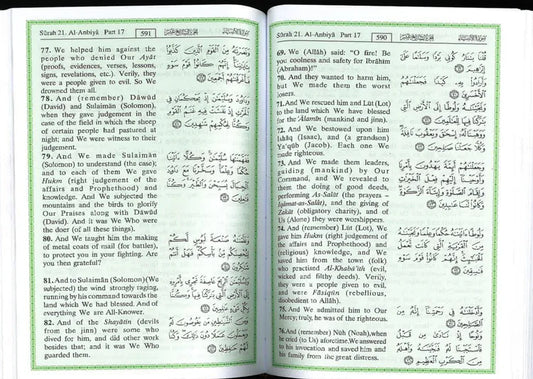 Sûrah 21. Al-Anbiyâ Part 17
590
69. We (Allâh) said: "O fire! Be
you coolness and safety for Ibrâhîm
(Abraham)!"
70. And they wanted to harm him,
but We made them the worst
losers.
71. And We rescued him and Lût (Lot)
to the land which We have blessed
for the 'Âlamîn (mankind and jinn).
72. And We bestowed upon him
Ishâq (Isaac), and (a grandson)
Ya'qûb (Jacob). Each one We
made righteous.
73. And We made them leaders,
guiding (mankind) by Our
Command, and We revealed to
them the doing of good deeds,
performing As-Salât (the prayers –
Iqâmat-as-Salât), and the giving of
Zakât (obligatory charity), and of
Us (Alone) they were worshippers.
74. And (remember) Lût (Lot), We
gave him Hukm (right judgement of
the affairs and Prophethood) and
(religious) knowledge, and We
saved him from the town (folk)
who practised Al-Khabâ'ith (evil,
wicked and filthy deeds). Verily,
they were a people given to evil,
and were Fâsiqûn (rebellious,
disobedient to Allâh).
75. And We admitted him to Our
Mercy; truly, he was of the righteous.
76. And (remember) Nûh (Noah), when
he cried (to Us) aforetime. We answered
to his invocation and saved him and
his family from the great distress.
قُلْنَا يَٰنَارُ كُونِى بَرْدًا وَسَلَٰمًا عَلَىٰٓ
إِبْرَٰهِيمَ
وَأَرَادُوا۟ بِهِۦ كَيْدًا فَجَعَلْنَٰهُمُ
ٱلْأَخْسَرِينَ
وَنَجَّيْنَٰهُ وَلُوطًا إِلَى ٱلْأَرْضِ ٱلَّتِى
بَٰرَكْنَا فِيهَا لِلْعَٰلَمِينَ
وَوَهَبْنَا لَهُۥٓ إِسْحَٰقَ وَيَعْقُوبَ نَافِلَةً
وَكُلًّا جَعَلْنَا صَٰلِحِينَ
وَجَعَلْنَٰهُمْ أَئِمَّةً يَهْدُونَ بِأَمْرِنَا
وَأَوْحَيْنَآ إِلَيْهِمْ فِعْلَ ٱلْخَيْرَٰتِ
وَإِقَامَ ٱلصَّلَوٰةِ وَإِيتَآءَ ٱلزَّكَوٰةِ
وَكَانُوا۟ لَنَا عَٰبِدِينَ
وَلُوطًا ءَاتَيْنَٰهُ حُكْمًا وَعِلْمًا وَنَجَّيْنَٰهُ
مِنَ ٱلْقَرْيَةِ ٱلَّتِى كَانَت تَّعْمَلُ
ٱلْخَبَٰٓئِثَ إِنَّهُمْ كَانُوا۟ قَوْمَ سَوْءٍ
فَٰسِقِينَ
وَأَدْخَلْنَٰهُ فِى رَحْمَتِنَآ إِنَّهُۥ مِنَ
ٱلصَّٰلِحِينَ
وَنُوحًا إِذْ نَادَىٰ مِن قَبْلُ
فَٱسْتَجَبْنَا لَهُۥ فَنَجَّيْنَٰهُ وَأَهْلَهُۥ
مِنَ ٱلْكَرْبِ ٱلْعَظِيمِ
Sûrah 21. Al-Anbiyâ Part 17
591
77. We helped him against the
people who denied Our Ayât
(proofs, evidences, verses, lessons,
signs, revelations, etc.). Verily, they
were a people given to evil. So We
drowned them all.
78. And (remember) Dâwûd
(David) and Sulaimân (Solomon),
when they gave judgement in the
case of the field in which the sheep
of certain people had pastured at
night; and We were witness to their
judgement.
79. And We made Sulaimân
(Solomon) to understand (the case);
and to each of them We gave
Hukm (right judgement of the
affairs and Prophethood) and
knowledge. And We subjected the
mountains and the birds to glorify
Our Praises along with Dâwûd
(David). And it was We Who were
the doer (of all these things).
80. And We taught him the making
of metal coats of mail (for battles),
to protect you in your fighting. Are
you then grateful?
81. And to Sulaimân (Solomon) (We
subjected) the wind strongly raging,
running by his command towards the
land which We had blessed. And of
everything We are All-Knower.
82. And of the Shayâtîn (devils
from the jinn) were some who
dived for him, and did other work
besides that; and it was We Who
guarded them.
وَنَصَرْنَٰهُ مِنَ ٱلْقَوْمِ ٱلَّذِينَ كَذَّبُوا۟
بِـَٔايَٰتِنَآ إِنَّهُمْ كَانُوا۟ قَوْمَ سَوْءٍ
فَأَغْرَقْنَٰهُمْ أَجْمَعِينَ
وَدَاوُۥدَ وَسُلَيْمَٰنَ إِذْ يَحْكُمَانِ فِى
ٱلْحَرْثِ إِذْ نَفَشَتْ فِيهِ غَنَمُ ٱلْقَوْمِ
وَكُنَّا لِحُكْمِهِمْ شَٰهِدِينَ
فَفَهَّمْنَٰهَا سُلَيْمَٰنَ وَكُلًّا ءَاتَيْنَا
حُكْمًا وَعِلْمًا وَسَخَّرْنَا مَعَ دَاوُۥدَ
ٱلْجِبَالَ يُسَبِّحْنَ وَٱلطَّيْرَ وَكُنَّا
فَٰعِلِينَ
وَعَلَّمْنَٰهُ صَنْعَةَ لَبُوسٍ لَّكُمْ
لِتُحْصِنَكُم مِّنۢ بَأْسِكُمْ فَهَلْ أَنتُمْ
شَٰكِرُونَ
وَلِسُلَيْمَٰنَ ٱلرِّيحَ عَاصِفَةً تَجْرِى بِأَمْرِهِۦٓ
إِلَى ٱلْأَرْضِ ٱلَّتِى بَٰرَكْنَا فِيهَا وَكُنَّا
بِكُلِّ شَىْءٍ عَٰلِمِينَ
وَمِنَ ٱلشَّيَٰطِينِ مَن يَغُوصُونَ لَهُۥ
وَيَعْمَلُونَ عَمَلًا دُونَ ذَٰلِكَ وَكُنَّا
لَهُمْ حَٰفِظِينَ